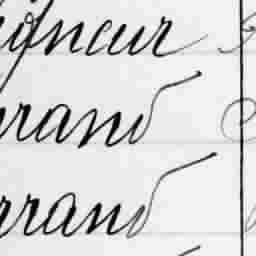 igneur
rrand
rrand